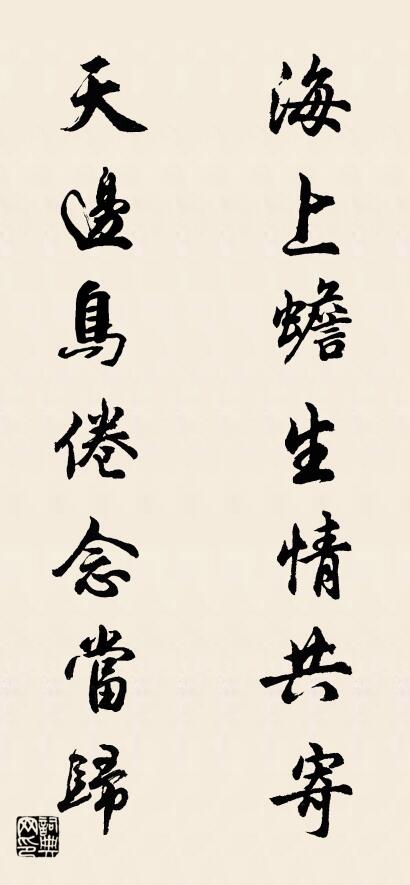 海上蟾生情共寄
天邊鳥倦念當歸
詞典網印